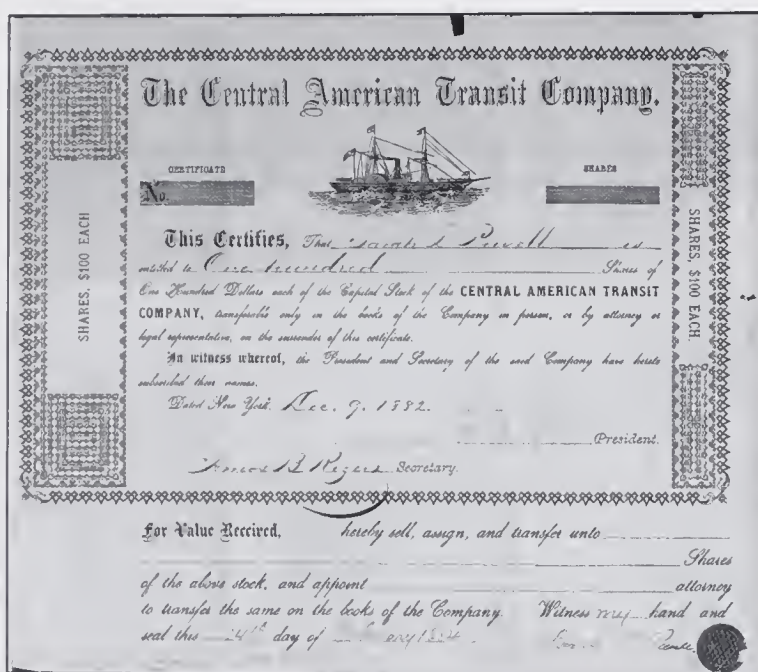 The Central American Transit Company.
CERTIFICATE
No.
SHARES
SHARES, $100 EACH
This Certifies, That Sarah L Powell is
entitled to One hundred Shares of
One Hundred Dollars each of the Capital Stock of the CENTRAL AMERICAN TRANSIT
COMPANY, transferable only on the books of the Company in person, or by attorney or
legal representative, on the surrender of this certificate.
In witness whereof, the President and Secretary of the said Company have hereto
subscribed their names.
Dated New York, Dec. 9. 1882.
President.
B Rogers Secretary.
SHARES, $100 EACH.
For Value Received, hereby sell, assign, and transfer unto
Shares
of the above stock, and appoint attorney
to transfer the same on the books of the Company. Witness my hand and
seal this 24th day of